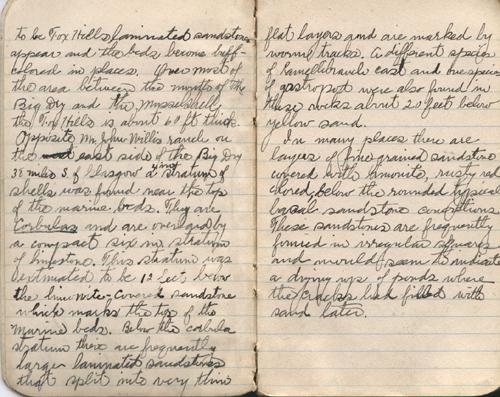 to be Fox Hills laminated sandstone
appear and the beds become buff-
colored in places. Over most of
the area between the mouth of the
Big Dry and the Musselshell
the Fox Hills is about 60 ft thick.
Opposite Mr. John Willis ranch on
the east side of the Big Dry
38 miles S of Glasgow a 4 in stratum of
shells was found near the top
of the marine beds. They are
Corbulas and are overlaid by
a compact six in stratum
of limestone. This stratum was
estimated to be 15 feet below
the limonite-covered sandstone
which marks the top of the
Marine beds. Below the corbula
stratum there are frequently
large laminated sandstones
that split into very thin
flat layers and are marked by
worm tracks. A different species
of Lamellibranch cast and one species
of gastropod were also found in
these rocks about 20 feet below
yellow sand.
In many places there are
layers of fine grained sandstone
covered with limonite, rusty red
colored, below the rounded typical
basal sandstone concretions.
These sandstones are frequently
formed in irregular squares
and would seem to indicate
a drying up of ponds where
the cracks had filled with
sand later.